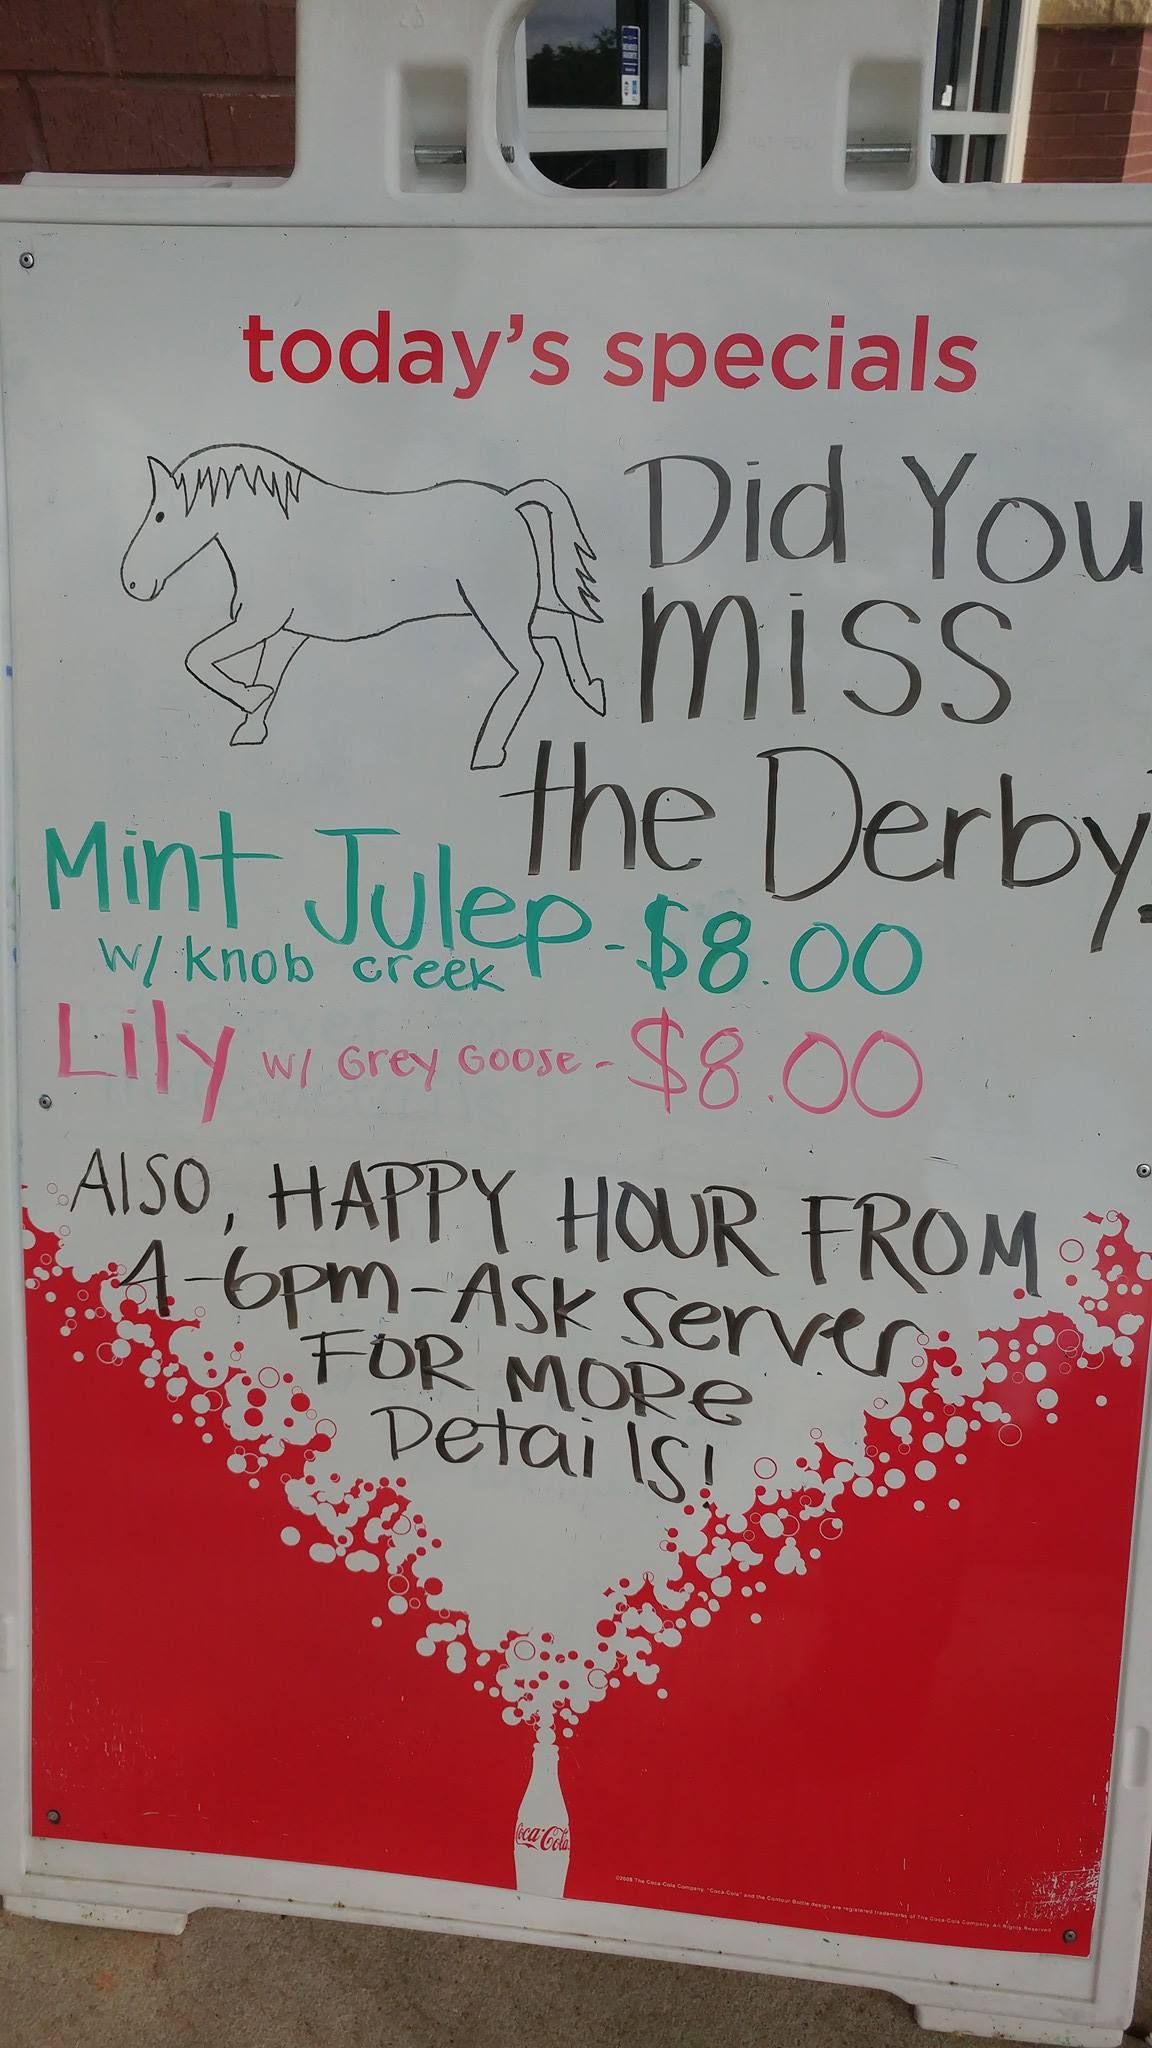 today's specials
Did You
miss
the Derby
Mint Julep - $8.00
w/ knob creek
Lily w/ Grey Goose - $8.00
Also, HAPPY HOUR FROM
4-6pm - Ask Server
FOR MORe
Details!
Coca-Cola
©2008 The Coca-Cola Company. "Coca-Cola" and the Contour Bottle design are registered trademarks of The Coca-Cola Company. All Rights Reserved